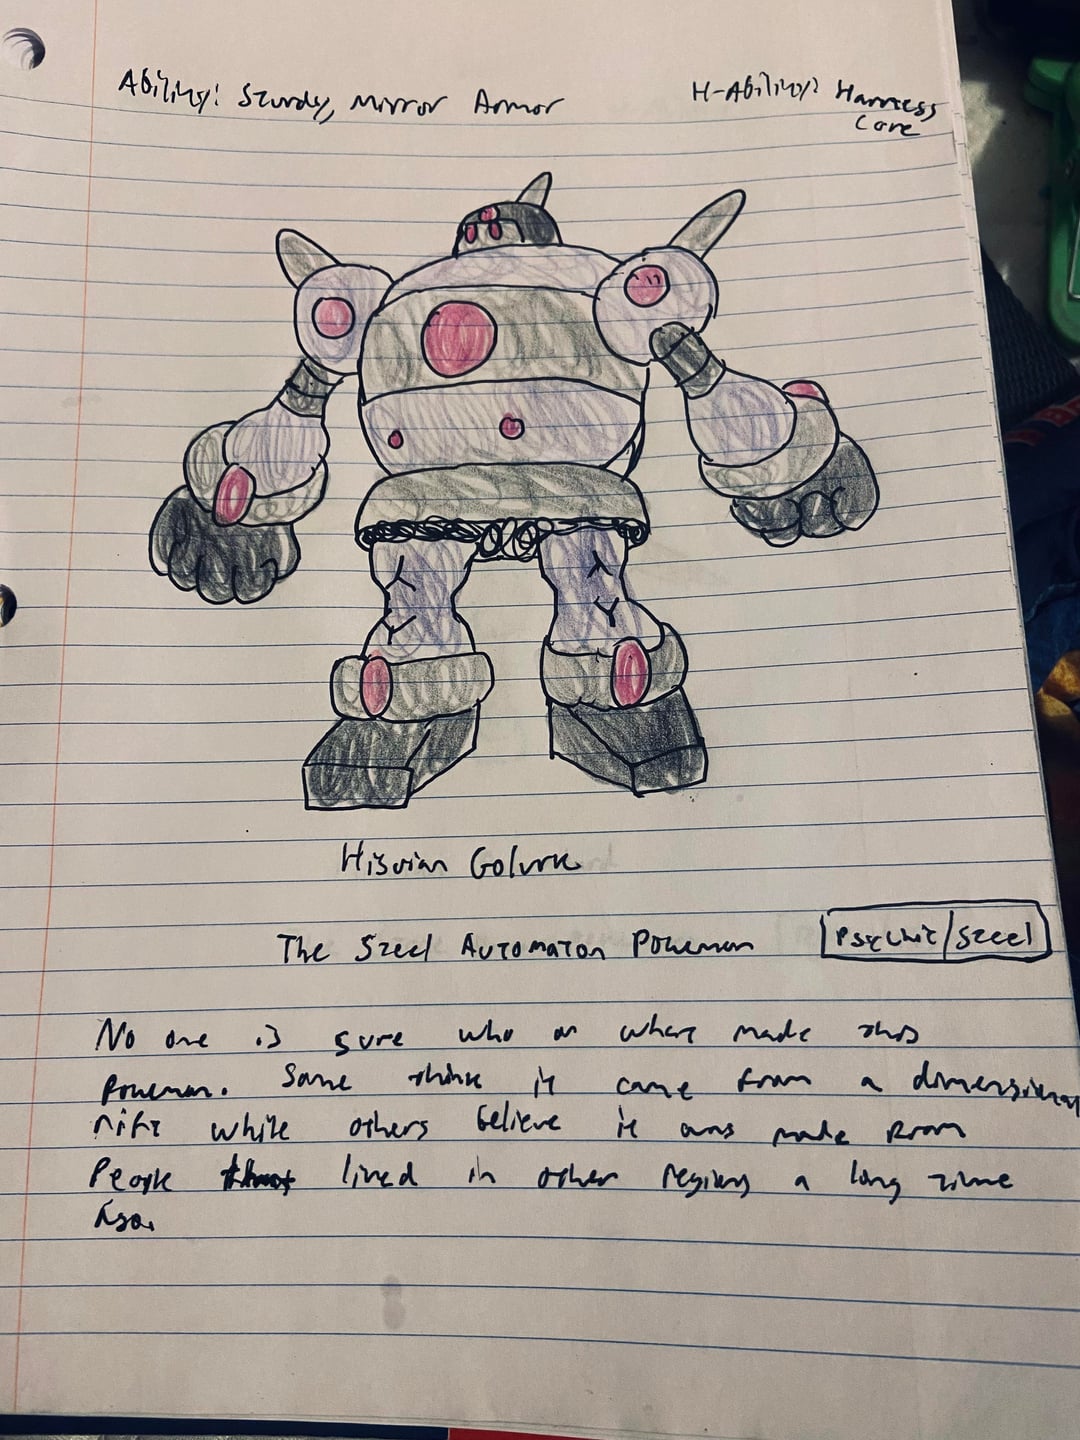 Ability: Sturdy, Mirror Armor
H-Ability: Harness
Core
Hisuian Golurk
The Steel Automaton Pokemon
Psychic/Steel
No one is sure who or where made this
Pokemon. Some think it came from a dimensional
rift while others believe it was made from
People lived in other regions a long time
Ago.